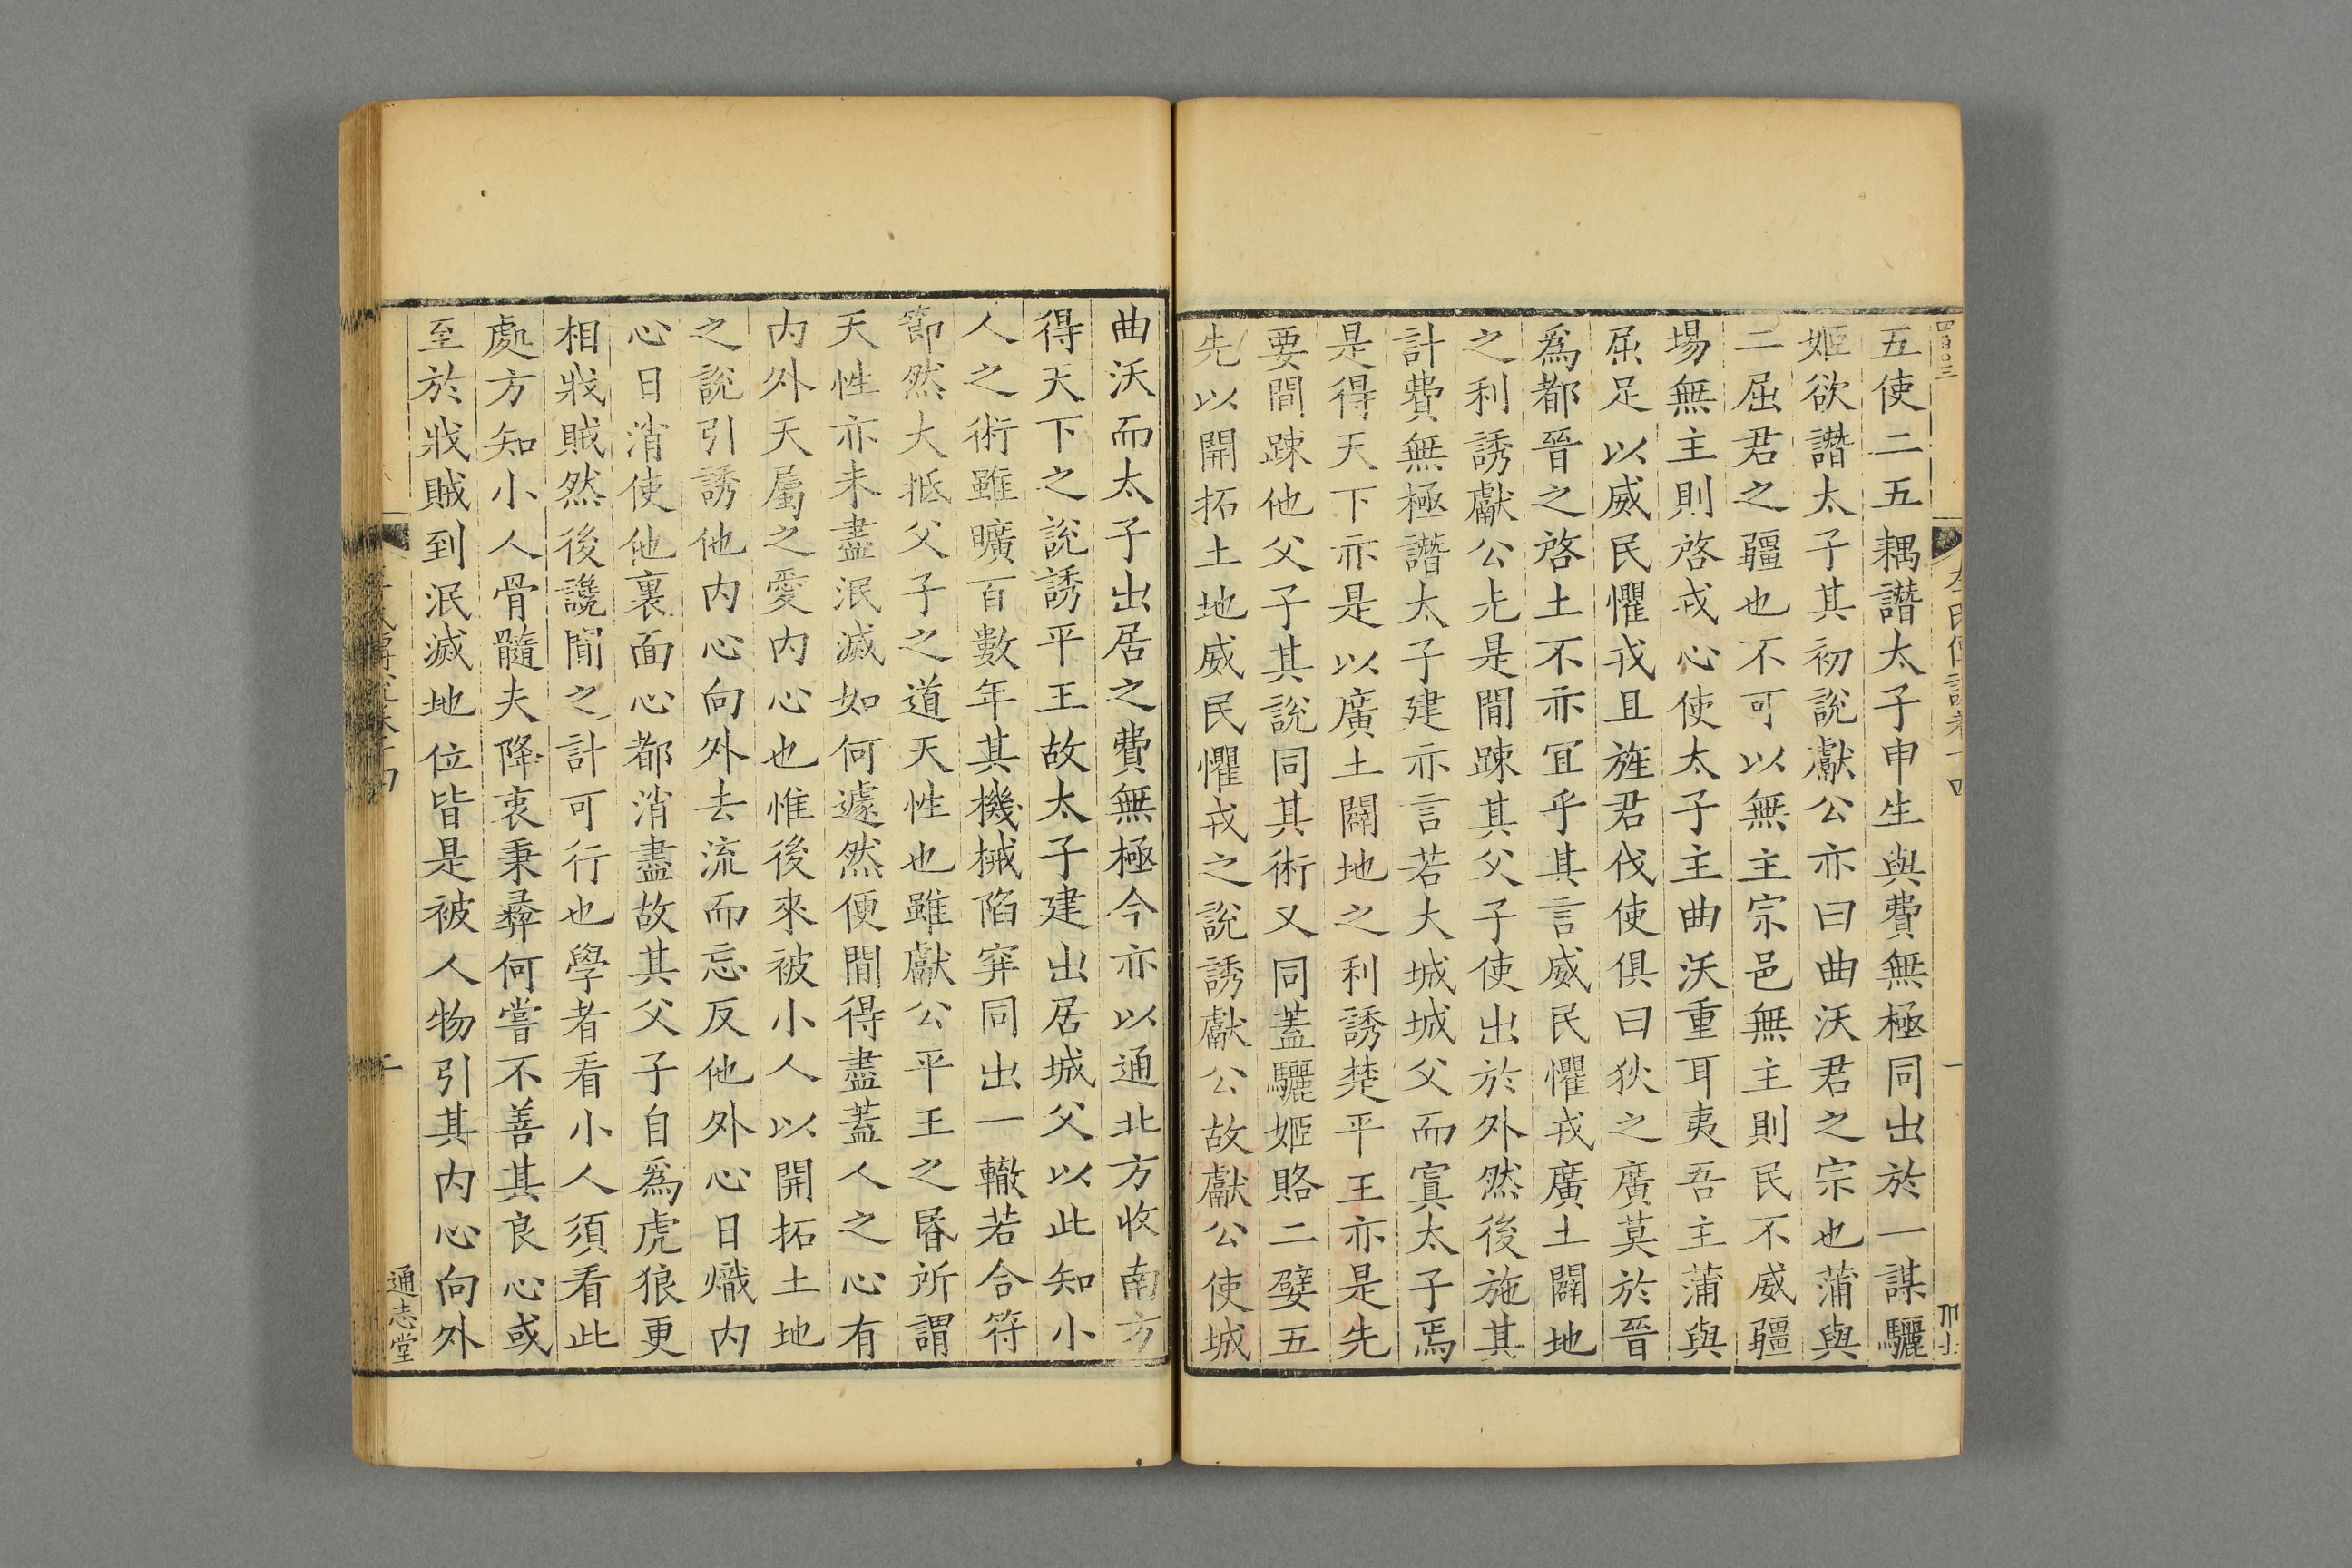 五使二五耦譖太子申生與費無極同出於一謀驪
姬欲譖太子其初說獻公亦曰曲沃君之宗也蒲與
二屈君之疆也不可以無主宗邑無主則民不威疆
場無主則啓戎心使太子主曲沃重耳夷吾主蒲與
屈足以威民懼戎且旌君伐使俱曰狄之廣莫於晉
爲都晉之啓土不亦宜乎其言威民懼戎廣土闢地
之利誘獻公先是閒踈其父子使出於外然後施其
計費無極譖太子建亦言若大城城父而寘太子焉
是得天下亦是以廣土闢地之利誘楚平王亦是先
要間踈他父子其說同其術又同蓋驪姬賂二嬖五
先以開拓土地威民懼戎之說誘獻公故獻公使城
曲沃而太子出居之費無極今亦以通北方收南方
得天下之說誘平王故太子建出居城父以此知小
人之術雖曠百數年其機械陷穽同出一轍若合符
節然大抵父子之道天性也雖獻公平王之昬所謂
天性亦未盡泯滅如何遽然便間得盡蓋人之心有
内外天屬之愛内心也惟後來被小人以開拓土地
之說引誘他内心向外去流而忘反他外心日熾内
心日消使他裏面心都消盡故其父子自爲虎狼更
相戕賊然後讒間之計可行也學者看小人須看此
處方知小人骨髓夫降衷秉彝何嘗不善其良心或
至於戕賊到泯滅地位皆是被人物引其内心向外
通志堂